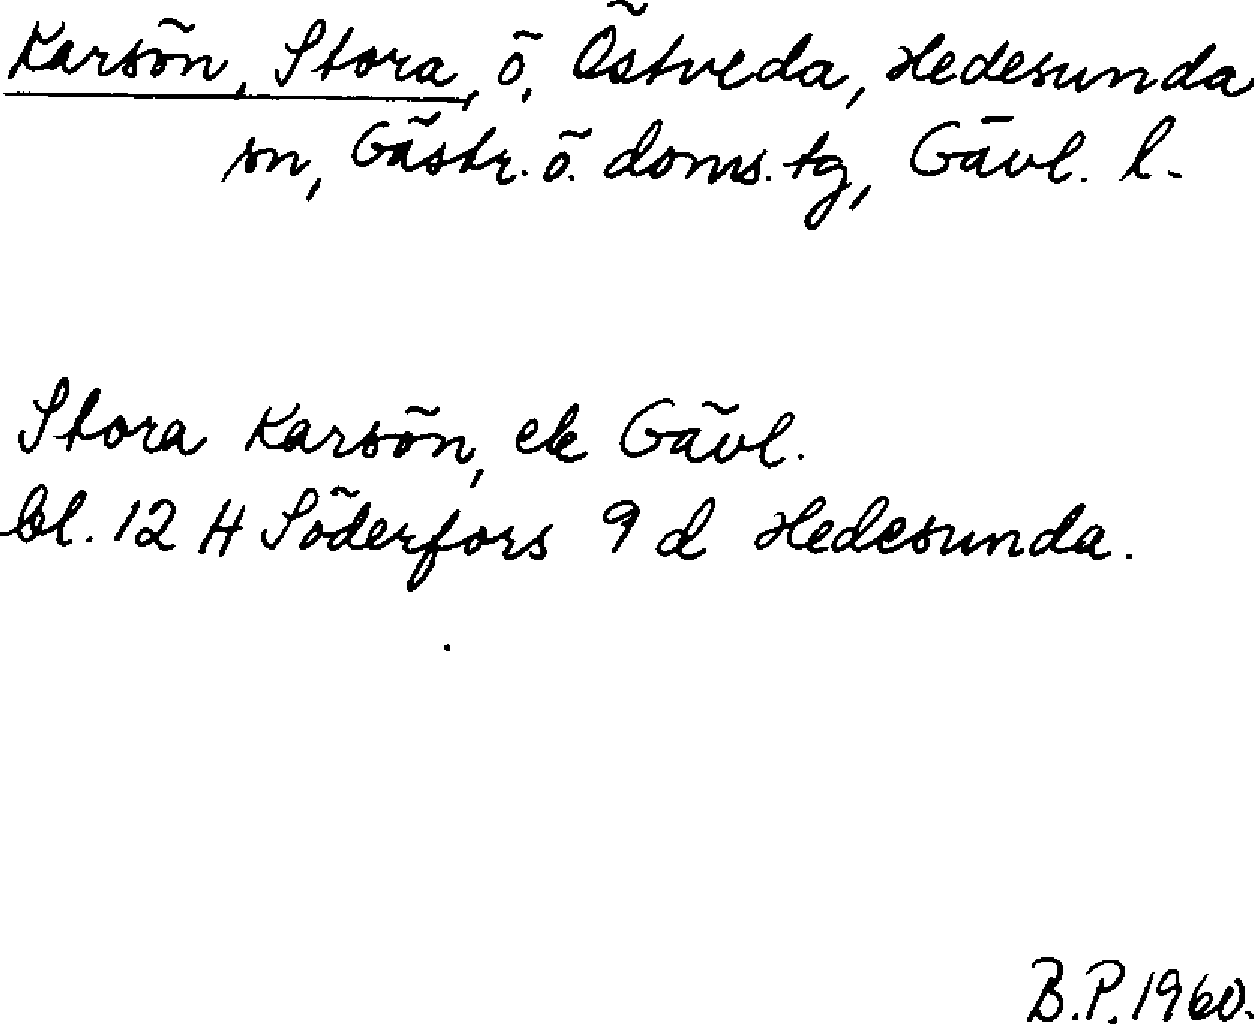 Karsön, Stora, ö, Östveda, Hedesunda
sn, Gästr. ö. doms. tg, Gävl. l.
Stora Karsön, ek Gävl.
bl. 12 H Söderfors 9 d Hedesunda.
B.P. 1960.